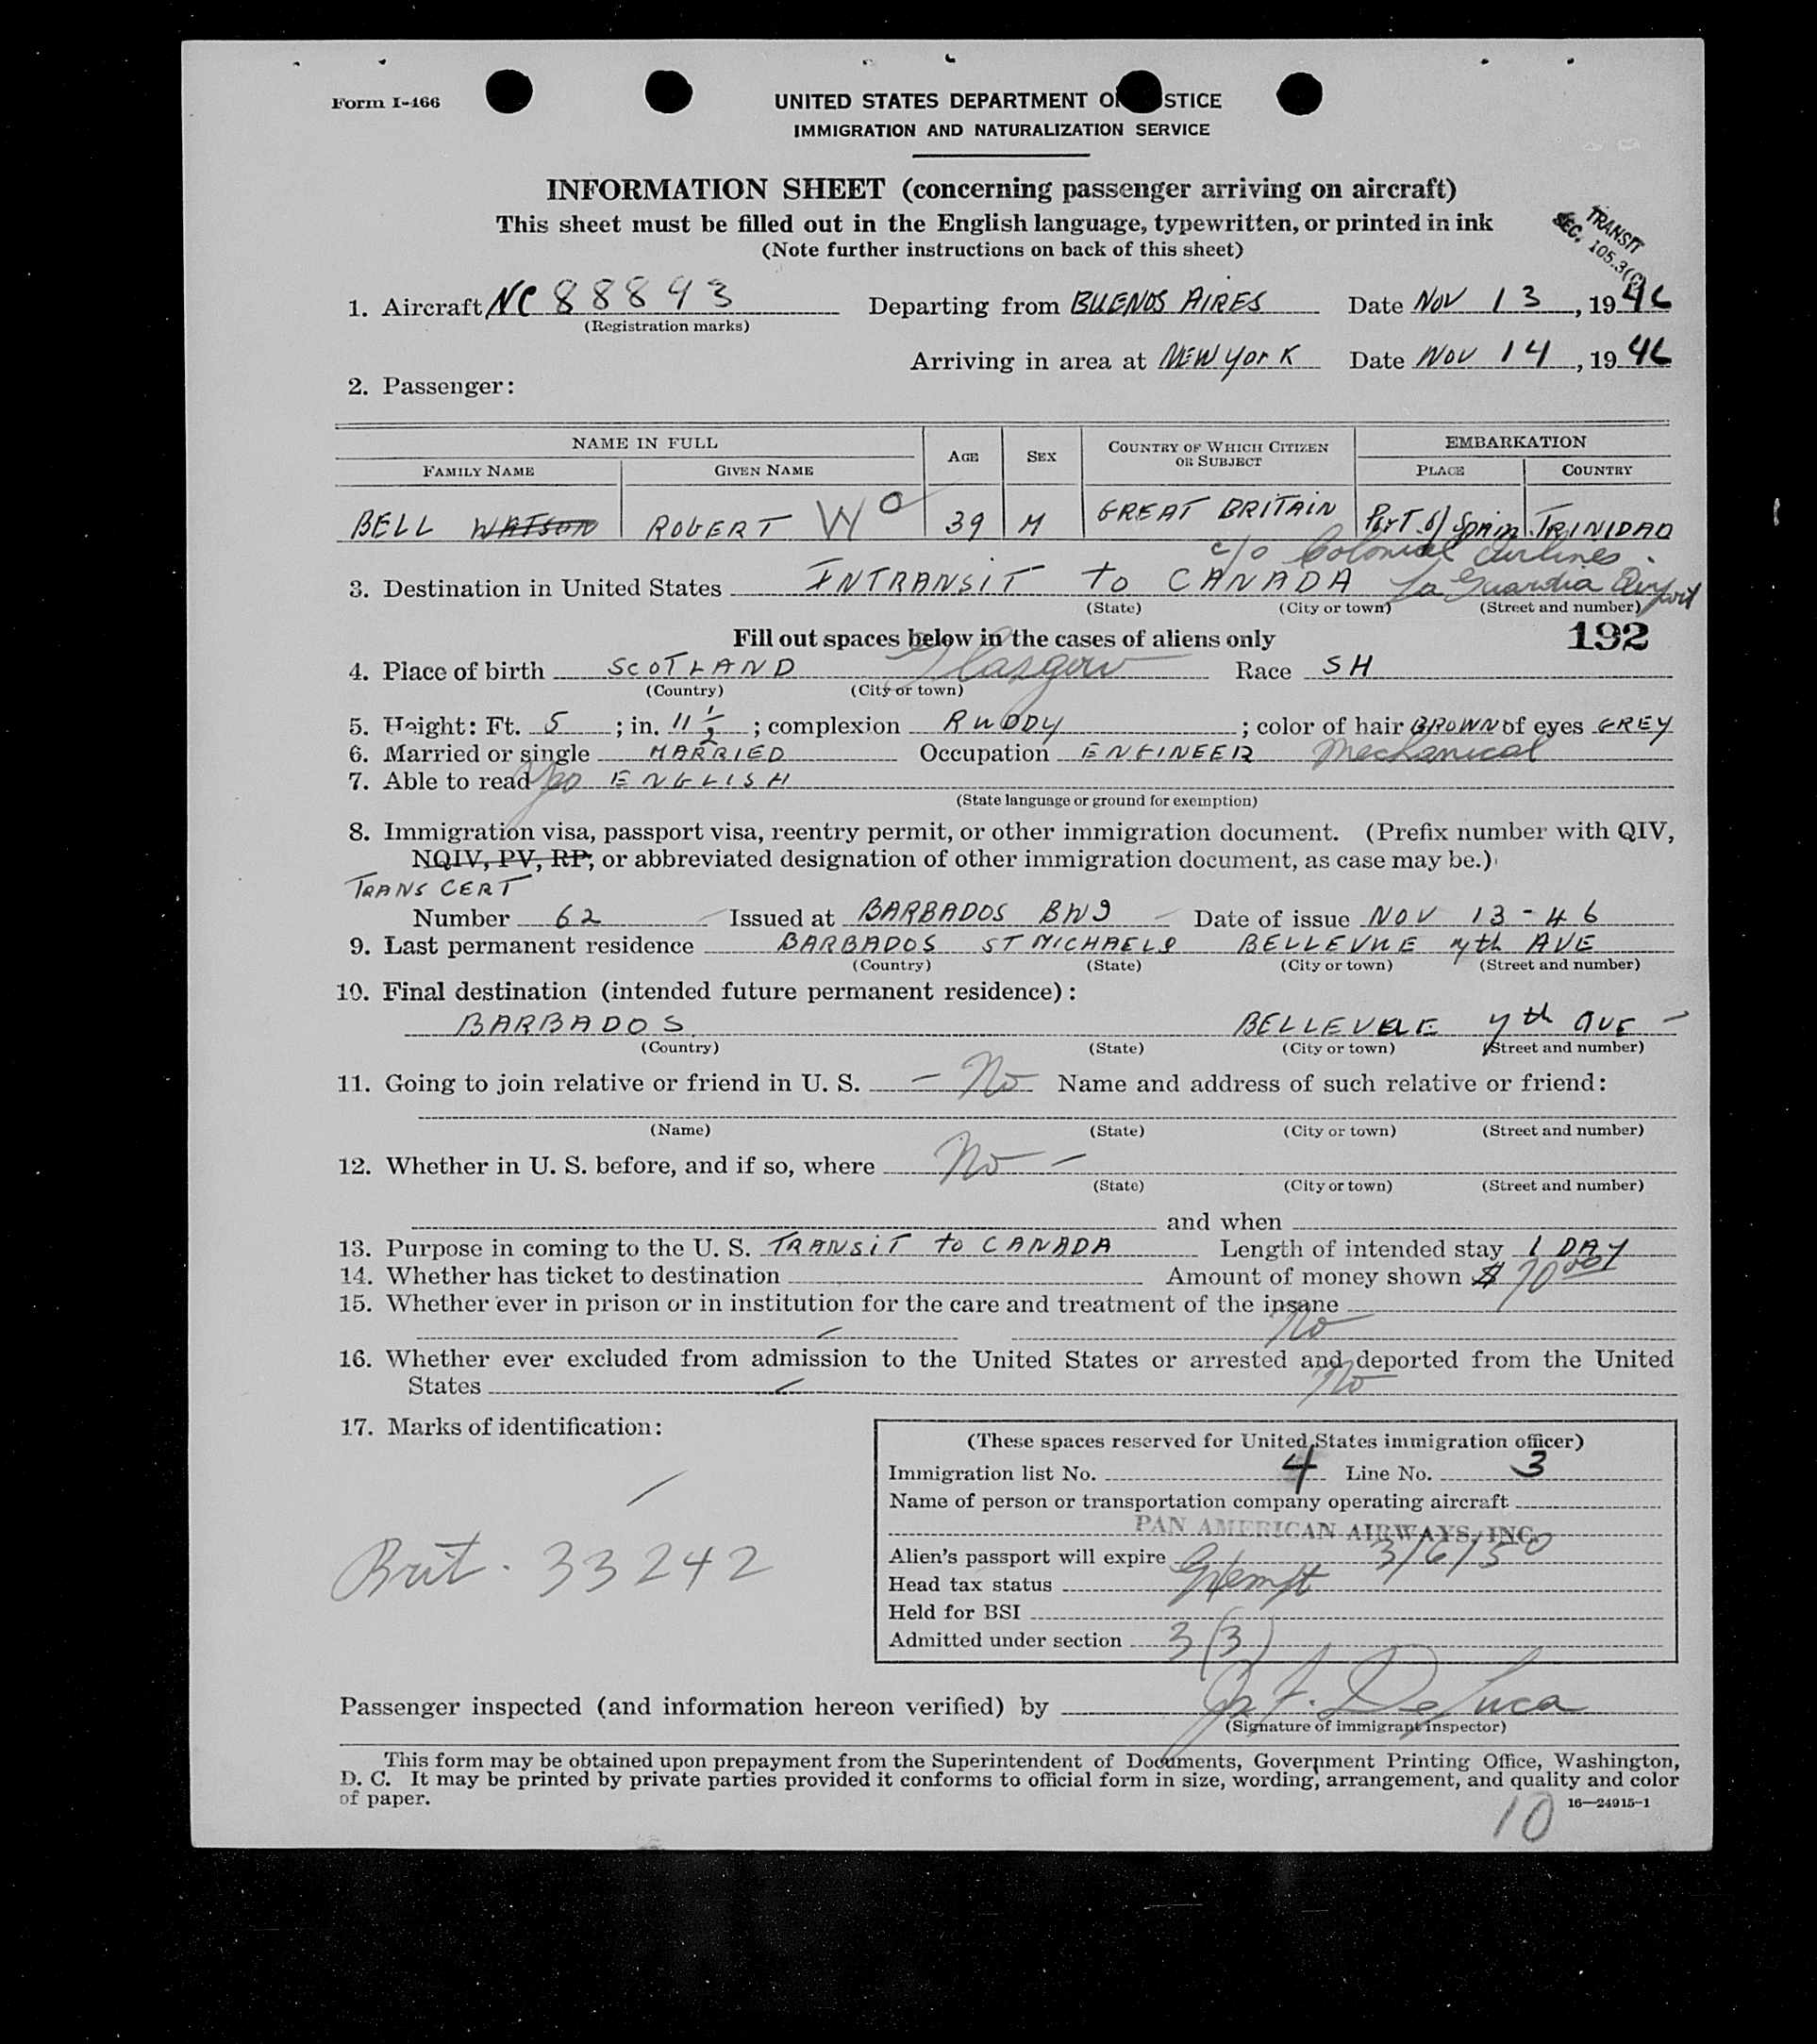 Form I-466
UNITED STATES DEPARTMENT O STICE
IMMIGRATION AND NATURALIZATION SERVICE
INFORMATION SHEET (concerning passenger arriving on aircraft)
This sheet must be filled out in the English language, typewritten, or printed in ink
(Note further instructions on back of this sheet)
TRANSIT
SEC. 105.3(C)
1. Aircraft NC 88893 Departing from BUENOS AIRES Date NOV 13, 1946
(Registration marks)
Arriving in area at NEW York Date NOV 14, 1946
2. Passenger:
NAME IN FULL AGE SEX COUNTRY OF WHICH CITIZEN OR SUBJECT EMBARKATION
FAMILY NAME GIVEN NAME PLACE COUNTRY
BELL WATSON ROBERT W 39 M GREAT BRITAIN PorT of Spain TRINIDAD
c/o Colonial Airlines
3. Destination in United States INTRANSIT to CANADA La Guardia Airport
(State) (City or town) (Street and number)
Fill out spaces below in the cases of aliens only 192
4. Place of birth SCOTLAND Glasgow Race SH
(Country) (City or town)
5. Height: Ft. 5; in. 11 1/2; complexion RUDDY; color of hair BROWN of eyes GREY
6. Married or single MARRIED Occupation ENGINEER Mechanical
7. Able to read Yes ENGLISH
(State language or ground for exemption)
8. Immigration visa, passport visa, reentry permit, or other immigration document. (Prefix number with QIV,
NQIV, PV, RP, or abbreviated designation of other immigration document, as case may be.)
TRANS CERT
Number 62 Issued at BARBADOS BWI Date of issue NOV 13-46
9. Last permanent residence BARBADOS ST MICHAELS BELLEVUE 7th AVE
(Country) (State) (City or town) (Street and number)
10. Final destination (intended future permanent residence):
BARBADOS BELLEVUE 7th AVE
(Country) (State) (City or town) (Street and number)
11. Going to join relative or friend in U. S. - No Name and address of such relative or friend:
(Name) (State) (City or town) (Street and number)
12. Whether in U. S. before, and if so, where No -
(State) (City or town) (Street and number)
and when
13. Purpose in coming to the U. S. TRANSIT to CANADA Length of intended stay 1 DAY
14. Whether has ticket to destination Amount of money shown $ 70.00
15. Whether ever in prison or in institution for the care and treatment of the insane
No
16. Whether ever excluded from admission to the United States or arrested and deported from the United
States No
17. Marks of identification:
Brit. 33242
(These spaces reserved for United States immigration officer)
Immigration list No. 4 Line No. 3
Name of person or transportation company operating aircraft
PAN AMERICAN AIRWAYS, INC.
Alien's passport will expire 3/6/50
Head tax status Exempt
Held for BSI
Admitted under section 3(3)
Passenger inspected (and information hereon verified) by De Luca
(Signature of immigrant inspector)
This form may be obtained upon prepayment from the Superintendent of Documents, Government Printing Office, Washington,
D. C. It may be printed by private parties provided it conforms to official form in size, wording, arrangement, and quality and color
of paper.
16—24915-1
10